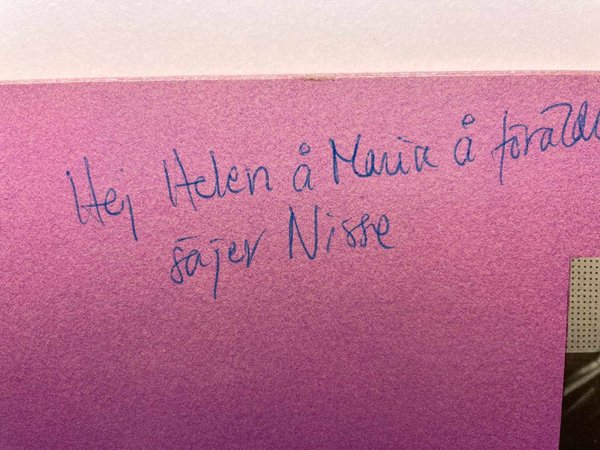 Hej Helen å Maria å
säjer Nisse